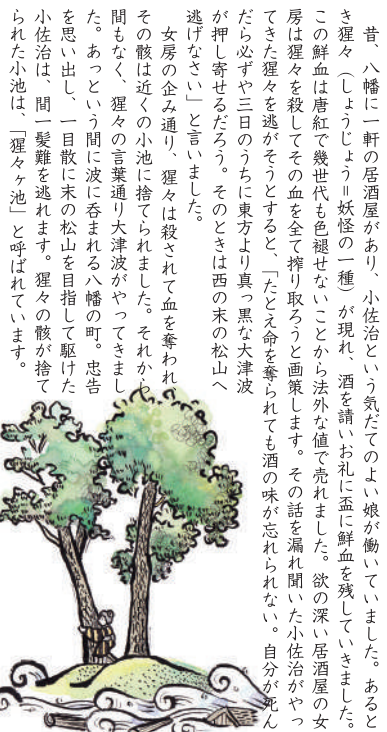 昔、八幡に一軒の居酒屋があり、小佐治という気だてのよい娘が働いていました。あると
き猩々（しょうじょう＝妖怪の一種）が現れ、酒を請いお礼に盃に鮮血を残していきました。
この鮮血は唐紅で幾世代も色褪せないことから法外な値で売れました。欲の深い居酒屋の女
房は猩々を殺してその血を全て搾り取ろうと画策します。その話を漏れ聞いた小佐治がやっ
てきた猩々を逃がそうとすると、「たとえ命を奪られても酒の味が忘れられない。自分が死ん
だら必ずや三日のうちに東方より真っ黒な大津波
が押し寄せるだろう。そのときは西の末の松山へ
逃げなさい」と言いました。
女房の企み通り、猩々は殺されて血を奪われ
その骸は近くの小池に捨てられました。それから
間もなく、猩々の言葉通り大津波がやってきまし
た。あっという間に波に呑まれる八幡の町。忠告
を思い出し、一目散に末の松山を目指して駆けた
小佐治は、間一髪難を逃れます。猩々の骸が捨て
られた小池は、「猩々ヶ池」と呼ばれています。